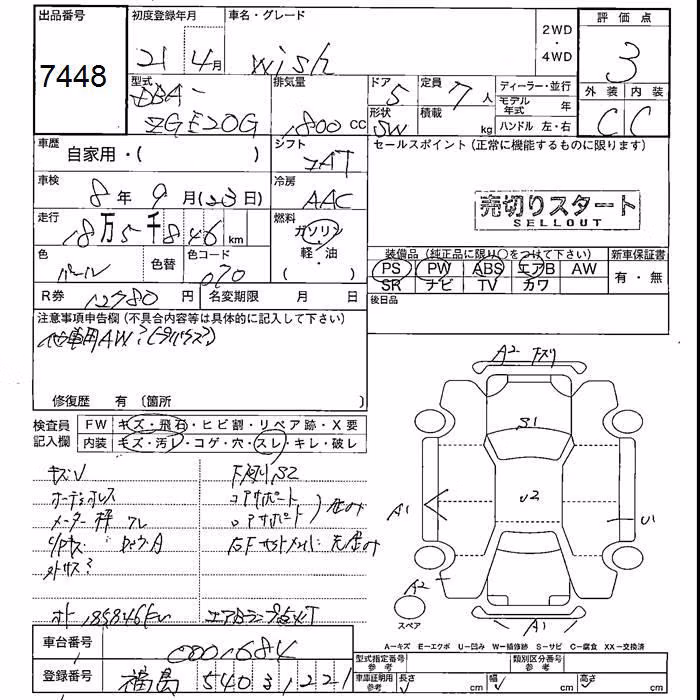 出品番号
7448
初度登録年月
21 4月
車名・グレード
wish
2WD
・
4WD
評価点
3
外装 内装
C C
型式
DBA-
ZGE20G
排気量
1800 cc
ドア
5
定員
7人
形状
SW
積載
kg
ディーラー・並行
モデル年式 年
ハンドル 左・右
車歴
自家用・( )
シフト
車検
8年 9月(23日)
冷房
AAC
走行
18万5千846 km
燃料
ガソリン
軽・油
( ・ )
色
パール
色替
色コード
070
R券
12780円
名変期限 月 日
セールスポイント(正常に機能するものに限ります)
売切りスタート
SELLOUT
装備品(純正品に限り○をつけて下さい)
PS PW ABS エアB AW
SR ナビ TV カワ
新車保証書
有・無
後日品
注意事項申告欄(不具合内容等は具体的に記入して下さい)
修復歴 有(箇所 )
検査員
記入欄
FW キズ・飛石・ヒビ割・リペア跡・X要
内装 キズ・汚レ・コゲ・穴・スレ・キレ・破レ
キズU
メーター枠
コアサポート
185846km
A2
S1
U2
A1
U1
A2
A1
スペア
A−キズ E−エクボ U−凹み W−補修跡 S−サビ C−腐食 XX−交換済
車台番号
0001684
登録番号
福島 540 3 1221
型式指定番号
参考
類別区分番号
参考
車庫証明用
参考
長さ cm
幅 cm
高さ cm